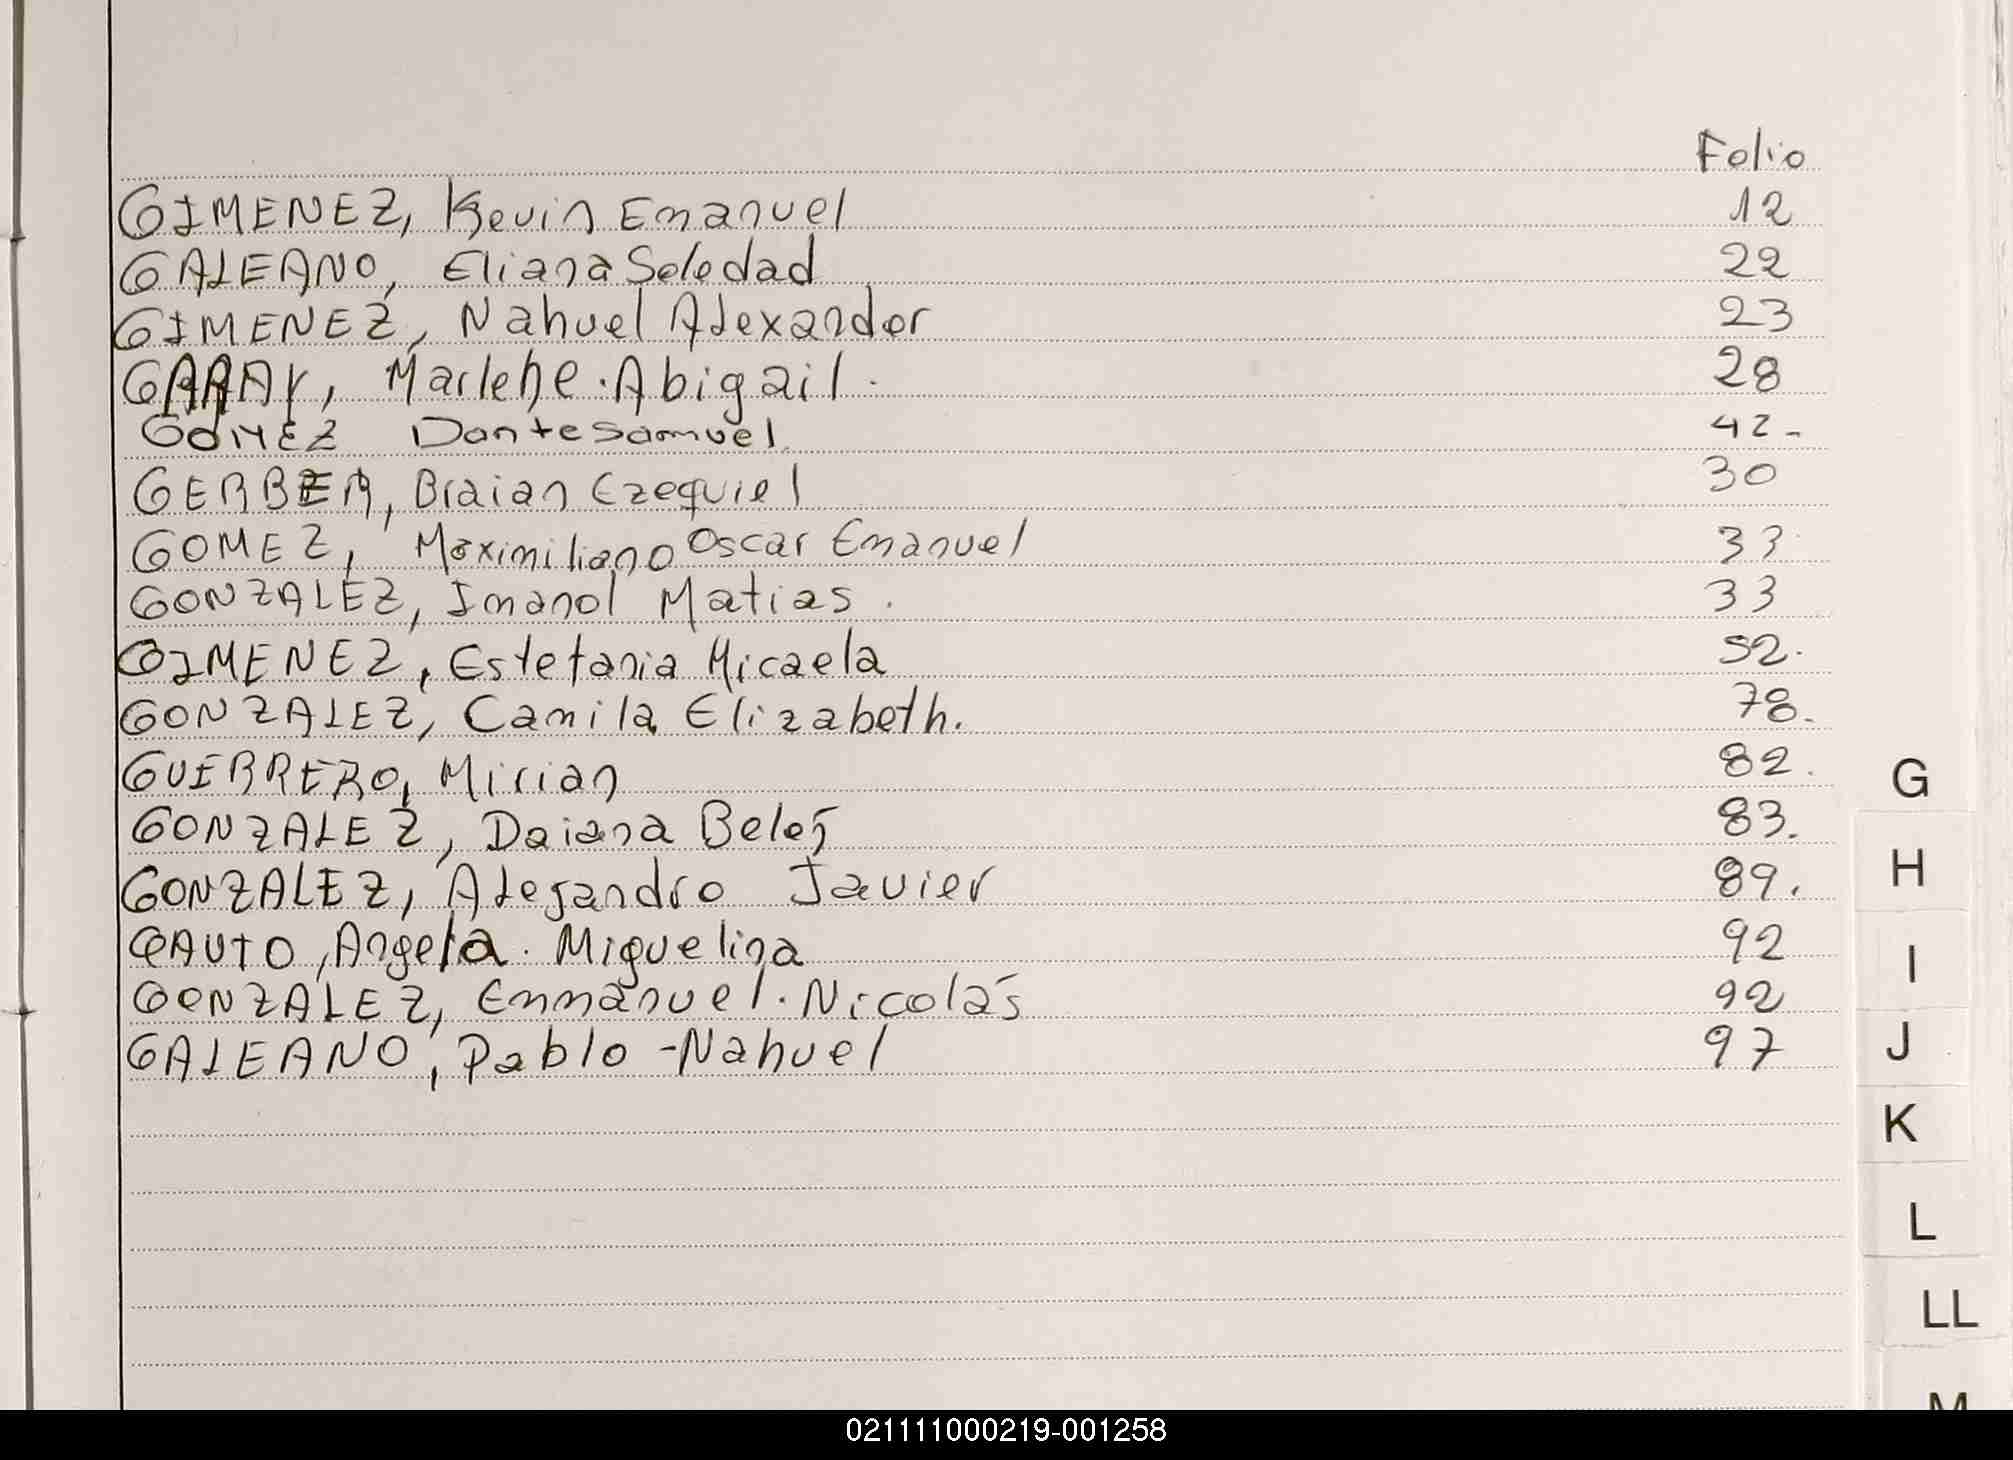 Folio
GIMENEZ, Kevin Emanuel 12
GALEANO, Eliana Soledad 22
GIMENEZ, Nahuel Alexander 23
GARAY, Marlene. Abigail. 28
GOMEZ Dante Samuel. 42-
GERBER, Braian Ezequiel 30
GOMEZ, Maximiliano Oscar Emanuel 33
GONZALEZ, Imanol Matias. 33
GIMENEZ, Estefania Micaela 52.
GONZALEZ, Camila Elizabeth. 78.
GUERRERO, Mirian 82.
GONZALEZ, Daiana Belén 83.
GONZALEZ, Alejandro Javier 89.
GAUTO, Angela. Miguelina 92
GONZALEZ, Emmanuel. Nicolás 92
GALEANO, Pablo-Nahuel 97
G
H
I
J
K
L
LL
M
021111000219-001258